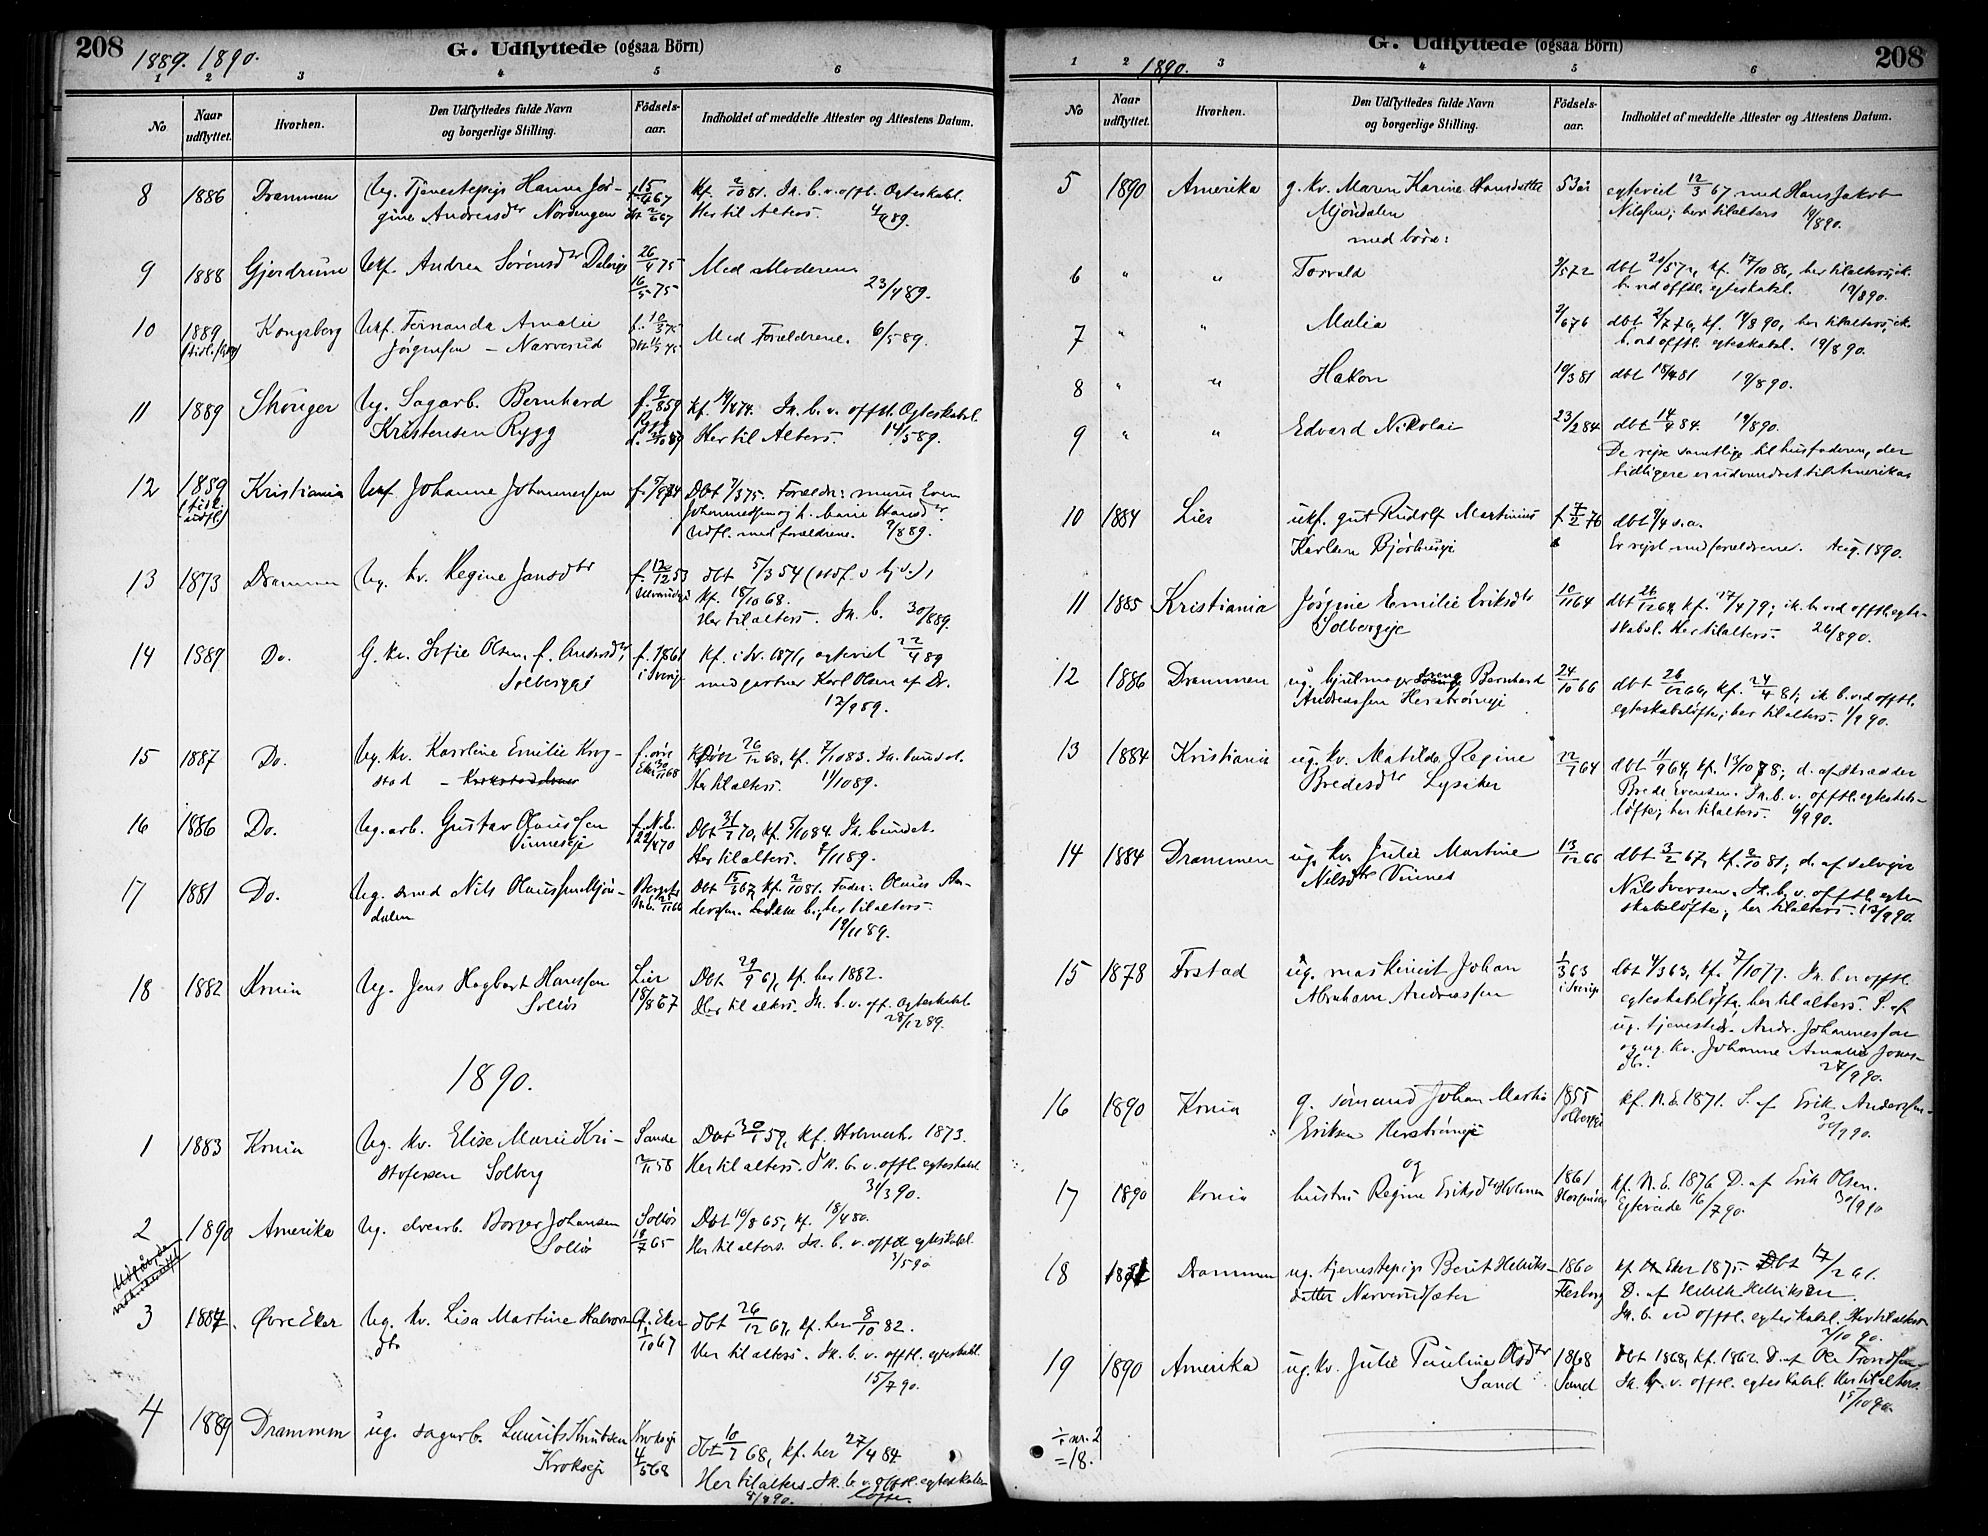 208
1889. 1890.
G. Udflyttede (ogsaa Börn)
1 2 3 4 5 6
No
Naar udflyttet.
Hvorhen.
Den Udflyttedes fulde Navn og borgerlige Stilling.
Födsels-aar.
Indholdet af meddelte Attester og Attestens Datum.
8 1886 Drammen Ug. Tjenestepige Hanna Jør- 15/4 67 Kf. 2/10 81. Ik. b. v. offtl. Egteskabsl.
gine Andreasdtr Nordengen Her til Alters. 4/4 89.
9 1888 Gjerdrum Ukf. Andrea Sørensdtr 26/4 75 Med Moderen
16/5 75 23/4 89.
10 1889 Kongsberg Ukf. Fernanda Amalie f. 10/3 75
Jørgensen – Narverud Med Forældrene. 6/5 89.
11 1889 Skouger Ug. Sagarb. Bernhard f. 9/8 59 Kf. 19/4 74. Ik. b. v. offtl. Egteskabsl.
Kristensen Rygg Her til Alters. 14/5 89.
12 1889 Kristiania Ukf. Johanne Johannessen Dbt 7/3 75. Forældre: murer Even
(tidl. udfl.) Johannessen og h. Marie Hansdtr.
Udfl. med forældrene. 9/8 89.
13 1873 Drammen Ug. kv. Regine Jansdtr f. 12/12 53 dbt 5/3 54
kf. 18/10 68.
Her til alters. Ik. b. 30/8 89.
14 1889 Do. G. kv. Sofie Olsen, f. Andersdtr, f. 1861 kf. i Dr. 1871, egteviet 22/4 89
Solbergeje i Sverige med gartner Karl Olsen af Dr.
12/9 89.
15 1887 Do. Ug. kv. Karoline Emilie Krog- f. øvre 26/12 68, kf. 7/10 83. Ik. bundet.
stad – Eker 30/11 68 Her til alters. 11/10 89.
16 1886 Do. Ug. arb. Gustav Olaussen f. N. E. Dbt 31/7 70, kf. 5/10 84. Ik. bundet.
Vinneseje 22/4 70 Her til alters. 9/11 89.
17 1881 Do. Ug. smed Nils Olaussen Mjøn- Dbt 15/5 67, kf. 2/10 81. Fader: Olaus An-
dalen derssen. Ikke b., her til alters.
19/11 89.
18 1882 Krnia Ug. Jens Hagbart Hanssen Lier Dbt 29/9 67, kf. her 1882.
Solløs 18/8 67 Her til alters. Ik. b. v. off. Egteskabsl.
28/12 89.
1890.
1 1883 Krnia Ug. kv. Elise Marie Kri- Sande Dbt 30/1 59, kf. Holmestr. 1873.
stofersen Solberg 2/11 58 Her til alters. Ik. b. v. offtl. egteskabsl.
31/3 90.
2 1890 Amerika Ug. elvearb. Borger Johansen Solløs Dbt 10/8 65, kf. 18/4 80.
Solløs 18/7 65 Her til alters. Ik. b. v. offtl. egteskabsl.
3/5 90
3 1887. Øvre Eker Ug. kv. Lisa Martine Halvors- Ø. Eker dbt 26/12 67, kf. her 8/10 82.
dtr 1/10 67 Her til alters. Ik. b. v. offtl. egteskabsl.
15/7 90.
4 1889 Drammen ug. sagarb. Laurits Knutsen dbt 10/7 68, kf. her 27/4 84
Krokseje 4/5 68 Her til alters. Ik. b. v. offtl. egteskabs-
8/8 90. løfte.
208
1890.
G. Udflyttede (ogsaa Börn)
1 2 3 4 5 6
No
Naar udflyttet.
Hvorhen.
Den Udflyttedes fulde Navn og borgerlige Stilling.
Födsels-aar.
Indholdet af meddelte Attester og Attestens Datum.
5 1890 Amerika g. kv. Maren Karine Hansdatter 53 år egteviet 12/3 67 med Hans Jakob
Mjøndalen Nilssen; her til alters 19/8 90.
med børn:
6 " " Torvald 3/5 72 dbt 20/5 72, kf. 17/10 86, her til alters, ik.
b. ved offtl. egteskabsl. 19/8 90.
7 " " Malia 2/6 76 dbt 2/7 76, kf. 19/8 90, her til alters, ik.
b. ved offtl. egteskabsl. 19/8 90.
8 " " Hakon 19/3 81 dbt 18/4 81 19/8 90.
9 " " Edvard Nikolai 23/2 84 dbt 14/4 84. 19/8 90.
De rejse samtlige til husfaderen, der
tidligere er udvandret til Amerika
10 1884 Lier ukf. gut Rudolf Martinius f. 7/2 76 dbt 9/4 s.a.
Karlsen Er rejst med forældrene. Aug. 1890.
11 1885 Kristiania Jørgine Emilie Eriksdtr 10/11 64 dbt 26/12 64, kf. 27/4 79; ik. b. ved offtl. egte-
Solbergeje skabsl. Her til alters. 26/8 90.
12 1886 Drammen ug. hjulmager Bernhard 24/10 66 dbt 26/12 66, kf. 24/4 81; ik b. ved offtl.
Andreassen Herstrømeje egteskabsløfte; her til alters. 1/9 90.
13 1884 Kristiania ug. kv. Matilde Regine 22/7 64 dbt 11/9 64, kf. 13/10 78; d. af skrædder
Bredesdtr Lysaker Brede Evensen. Ik. b. v. offtl. egteskabs-
løfte; her til alters. 6/9 90.
14 1884 Drammen ug. kv. Julie Martine 13/12 66 dbt 3/2 67, kf. 2/10 81; d. af selvejer
Nilsdtr Vinnes Nils Iversen. Ik. b. v. offtl. egte-
skabsløfte; her til alters. 13/9 90.
15 1878 Frstad ug. maskinist Johan 1/3 63 dbt 4/3 63, kf. 7/10 77. Ik. b. v. offtl.
Abraham Andreassen i Sverige egteskabsløfte, her til alters. S. af
ug. tjenestedr. Andr. Johannessen
og ug. kv. Johanne Amalie Jons-
dtr. 27/9 90.
16 1890 Krnia g. sømand Johan Martin 1855 kf. N. E. 1871. S. af Erik Anderssen
Eriksen Herstrømeje Solbergeje 30/9 90.
og
17 1890 Krnia hustru Regine Eriksdtr Holmen 1861 kf. N. E. 1876 D. af Erik Olsen.
Egteviede 16/7 90. 30/9 90
18 Drammen ug. tjenestepige Berit Helliks- 1860 kf. Eker 1875. Dbt 17/2 61.
datter Narverudsæter Flesberg D. af Hellik Helliksen.
Ik. b. ved offtl. egteskabsl. Her til alters
2/10 90.
19 1890 Amerika ug. kv. Julie Pauline Olsdtr 1868 Dbt 1868, kf. 1882. D. af Ole Trondsen
Sand Sand Ik. b. v. offtl. egteskabsl. Her til alters.
15/10 90.
nr. 2
= 18.